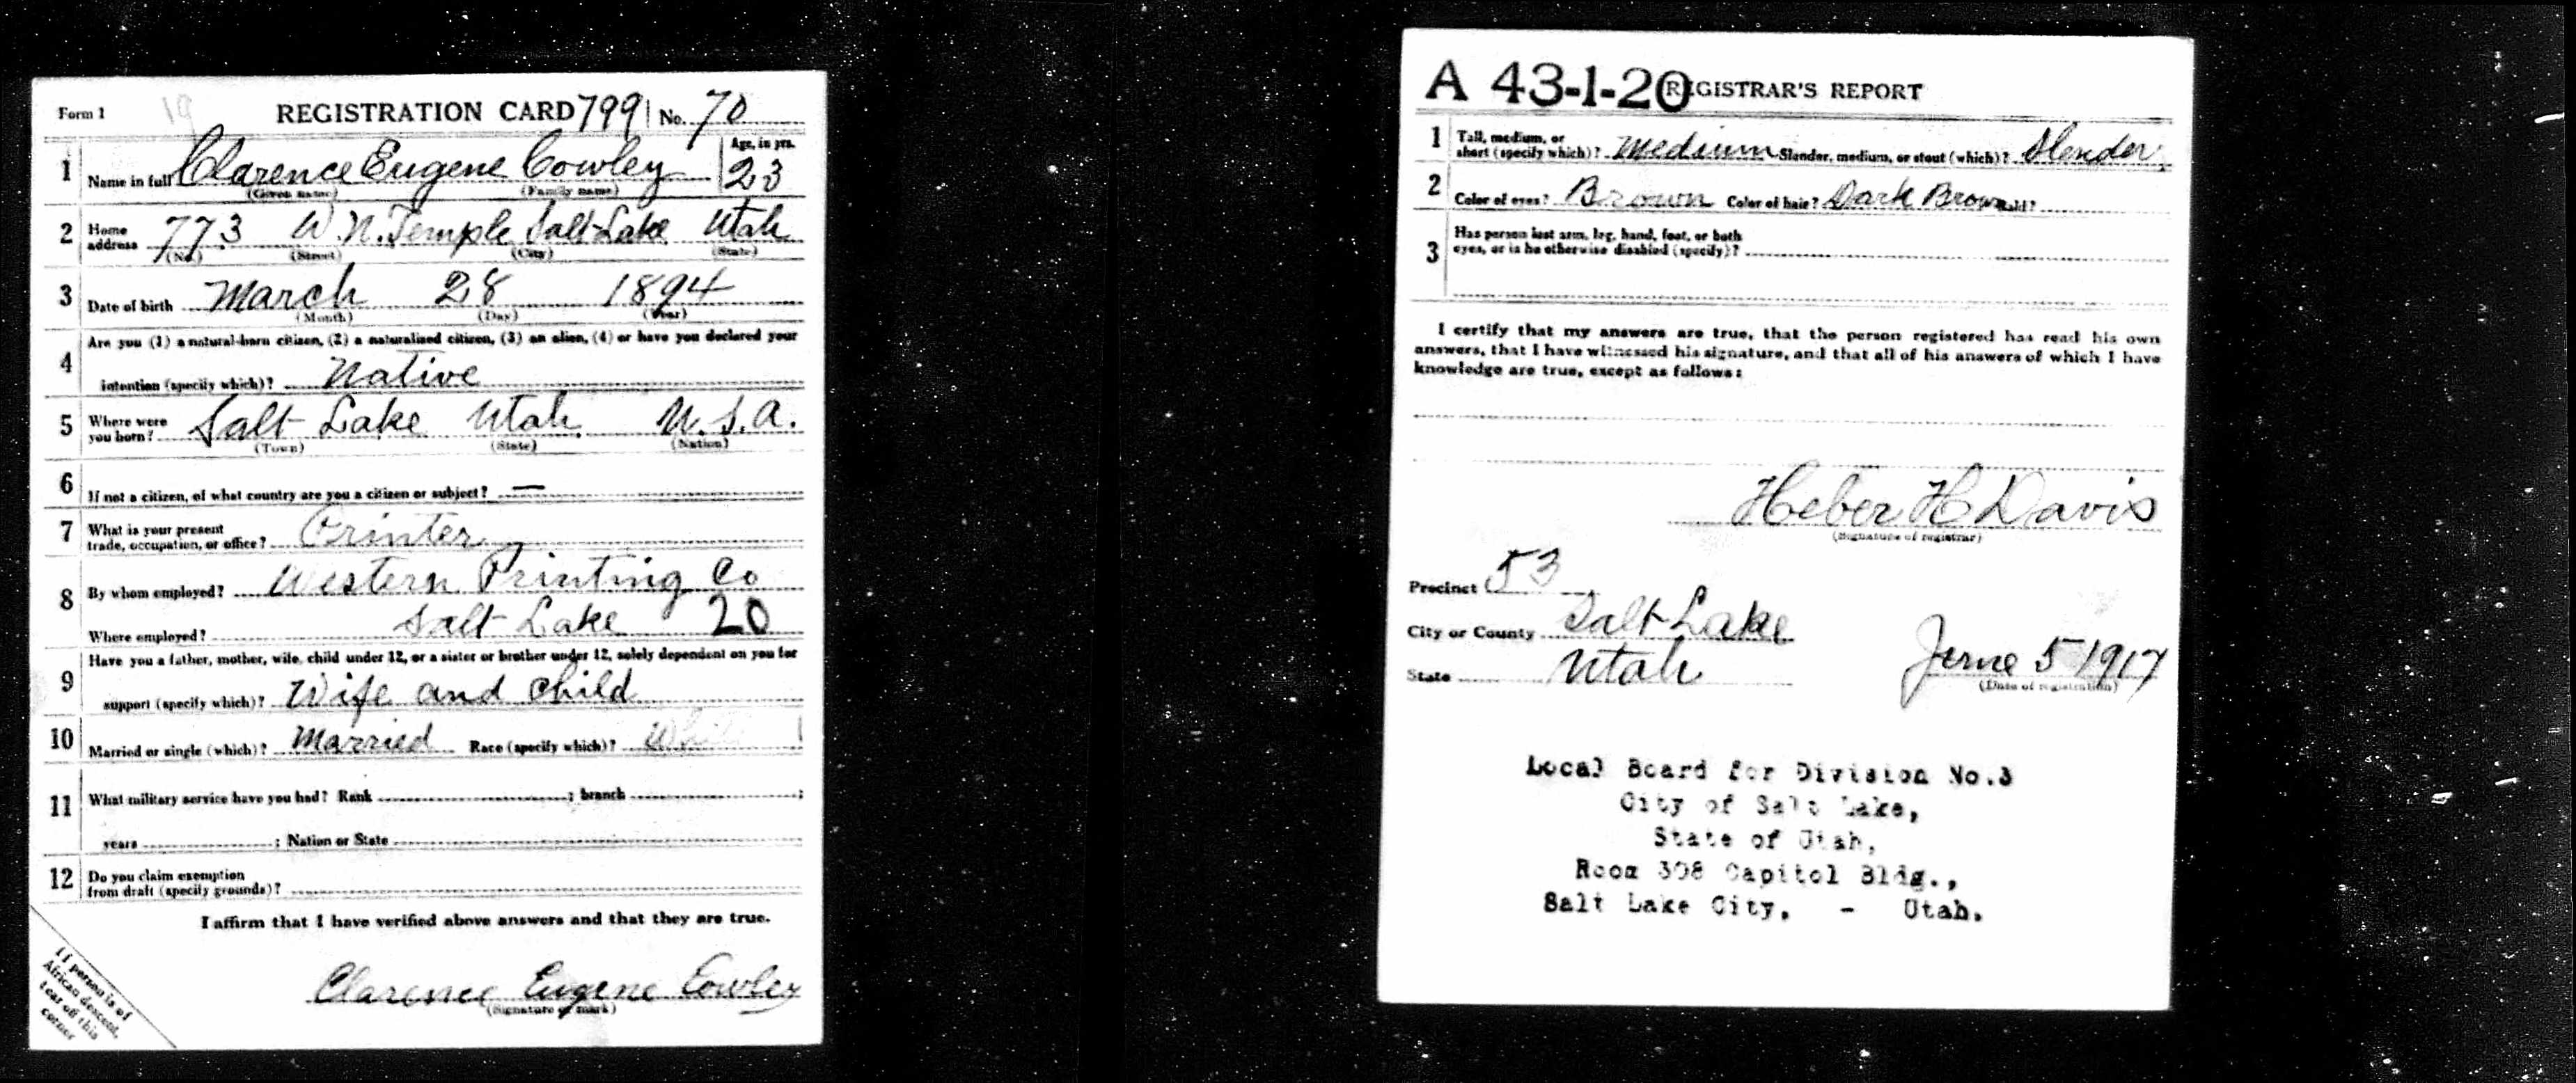 Form 1 19 REGISTRATION CARD 799 No. 70
1 Name in full Clarence Eugene Cowley Age, in yrs. 23
(Given name) (Family name)
2 Home address 773 W. N. Temple Salt Lake Utah
(No.) (Street) (City) (State)
3 Date of birth March 28 1894
(Month) (Day) (Year)
4 Are you (1) a natural-born citizen, (2) a naturalized citizen, (3) an alien, (4) or have you declared your
intention (specify which)? Native
5 Where were you born? Salt Lake Utah U.S.A.
(Town) (State) (Nation)
6 If not a citizen, of what country are you a citizen or subject? —
7 What is your present
trade, occupation, or office? Printer
8 By whom employed? Western Printing Co
Where employed? Salt Lake 20
9 Have you a father, mother, wife, child under 12, or a sister or brother under 12, solely dependent on you for
support (specify which)? Wife and child
10 Married or single (which)? Married Race (specify which)? White
11 What military service have you had? Rank ; branch ;
years ; Nation or State
12 Do you claim exemption
from draft (specify grounds)?
I affirm that I have verified above answers and that they are true.
Clarence Eugene Cowley
(Signature or mark)
If person is of
African descent,
tear off this
corner
A 43-1-20 REGISTRAR'S REPORT
1 Tall, medium, or
short (specify which)? Medium Slender, medium, or stout (which)? Slender
2 Color of eyes? Brown Color of hair? Dark Brown Bald?
3 Has person lost arm, leg, hand, foot, or both
eyes, or is he otherwise disabled (specify)?
I certify that my answers are true, that the person registered has read his own
answers, that I have witnessed his signature, and that all of his answers of which I have
knowledge are true, except as follows:
Heber H Davis
(Signature of registrar)
Precinct 53
City or County Salt Lake
State Utah June 5 1917
(Date of registration)
Local Board for Division No.3
City of Salt Lake,
State of Utah,
Room 308 Capitol Bldg.,
Salt Lake City, - Utah.